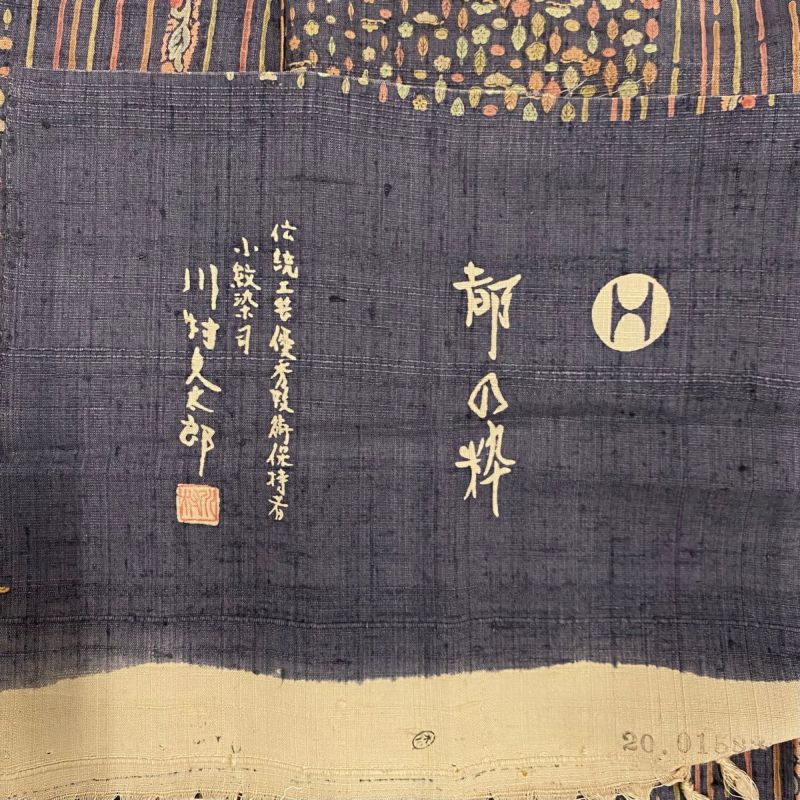 都の粋
伝統工芸優秀技術保持者
小紋染司
川村久太郎
川村
20.01588